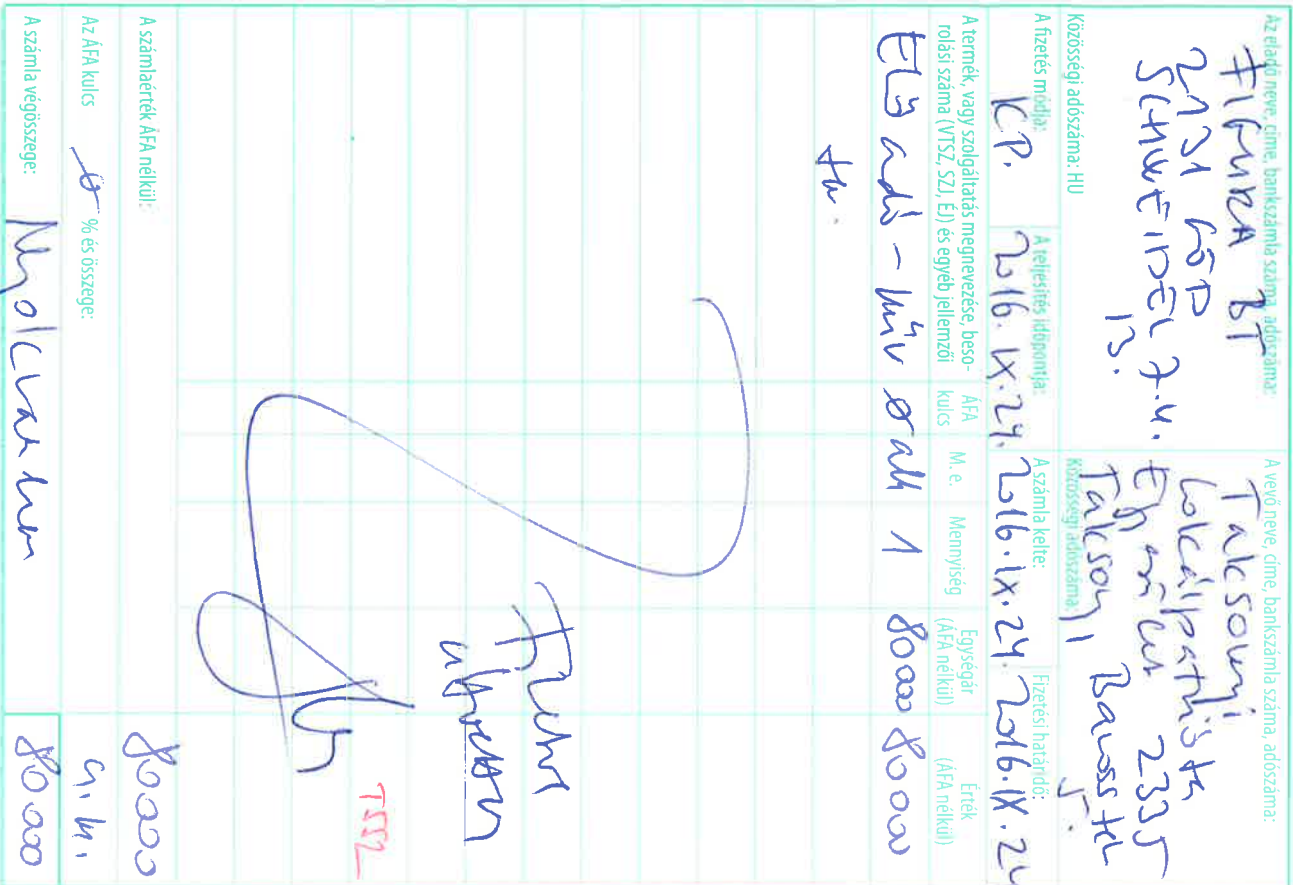 Az eladó neve, címe, bankszámla száma, adószáma:
FIGURA BT
2131 GÖD
SCHWEIDEL J.U.
13.
A vevő neve, címe, bankszámla száma, adószáma:
Taksonyi
Lokálpatrióta
2335
Taksony, Baross tér
5.
Közösségi adószáma: HU
Közösségi adószáma:
A fizetés módja:
KP.
A teljesítés időpontja:
2016. IX. 24.
A számla kelte:
2016. IX. 24.
Fizetési határidő:
2016. IX. 24
A termék, vagy szolgáltatás megnevezése, beso-
rolási száma (VTSZ, SZJ, ÉJ) és egyéb jellemzői
ÁFA
kulcs
M. e.
Mennyiség
Egységár
(ÁFA nélkül)
Érték
(ÁFA nélkül)
Előadó-műv 0 alk 1 80000 80000
tev.
Ft-ot
átvettem
T552
A számlaérték ÁFA nélkül:
80000
Az ÁFA kulcs 0 % és összege:
A számla végösszege:
Nyolcvanezer
80000